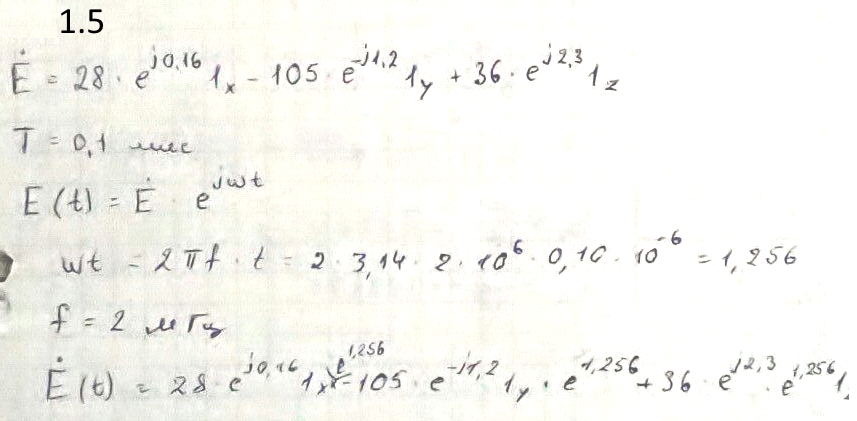 1.5
Ė = 28 · e^{j0,16} 1_x - 105 · e^{-j1,2} 1_y + 36 · e^{j2,3} 1_z
T = 0,1 мкс
E(t) = Ė · e^{jωt}
ωt = 2πf · t = 2 · 3,14 · 2 · 10^6 · 0,10 · 10^{-6} = 1,256
f = 2 мГц
Ė(t) = 28 · e^{j0,16} 1_x · e^{1,256} - 105 · e^{-j1,2} 1_y · e^{1,256} + 36 · e^{j2,3} · e^{1,256} 1_z